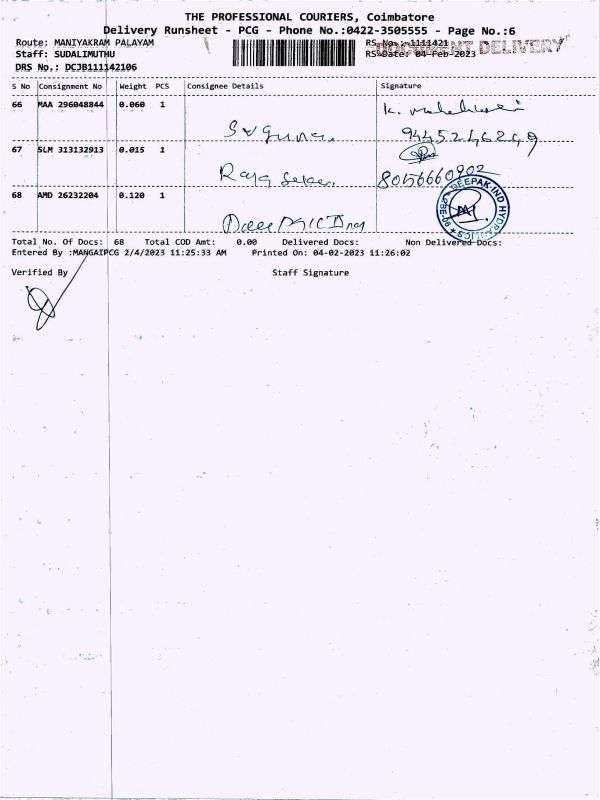 THE PROFESSIONAL COURIERS, Coimbatore
Delivery Runsheet - PCG - Phone No.:0422-3505555 - Page No.:6
Route: MANIYAKRAM PALAYAM
RS No.: 1111421
DOCUMENT DELIVERY
Staff: SUDALIMUTHU
RS Date: 04-Feb-2023
DRS No.: DCJB111142106
S No Consignment No Weight PCS Consignee Details Signature
66 MAA 296048844 0.060 1
Suguna
9445246249
67 SLM 313132913 0.015 1
Raja Sekar
8056660902
68 AMD 26232204 0.120 1
DEEPAK IND HYDRAULICS
Deepak Ind
Total No. Of Docs: 68 Total COD Amt: 0.00 Delivered Docs: Non Delivered Docs:
Entered By :MANGAIPCG 2/4/2023 11:25:33 AM Printed On: 04-02-2023 11:26:02
Verified By Staff Signature